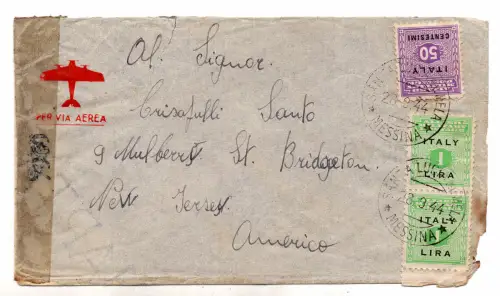 Al Signor.
Crisafulli Santo
9 Mulberry St. Bridgeton.
New Jersey
America
PER VIA AEREA
50
CENTESIMI
ITALY
MESSINA
ITALY
1
LIRA
28.9.44
MESSINA
ITALY
LIRA